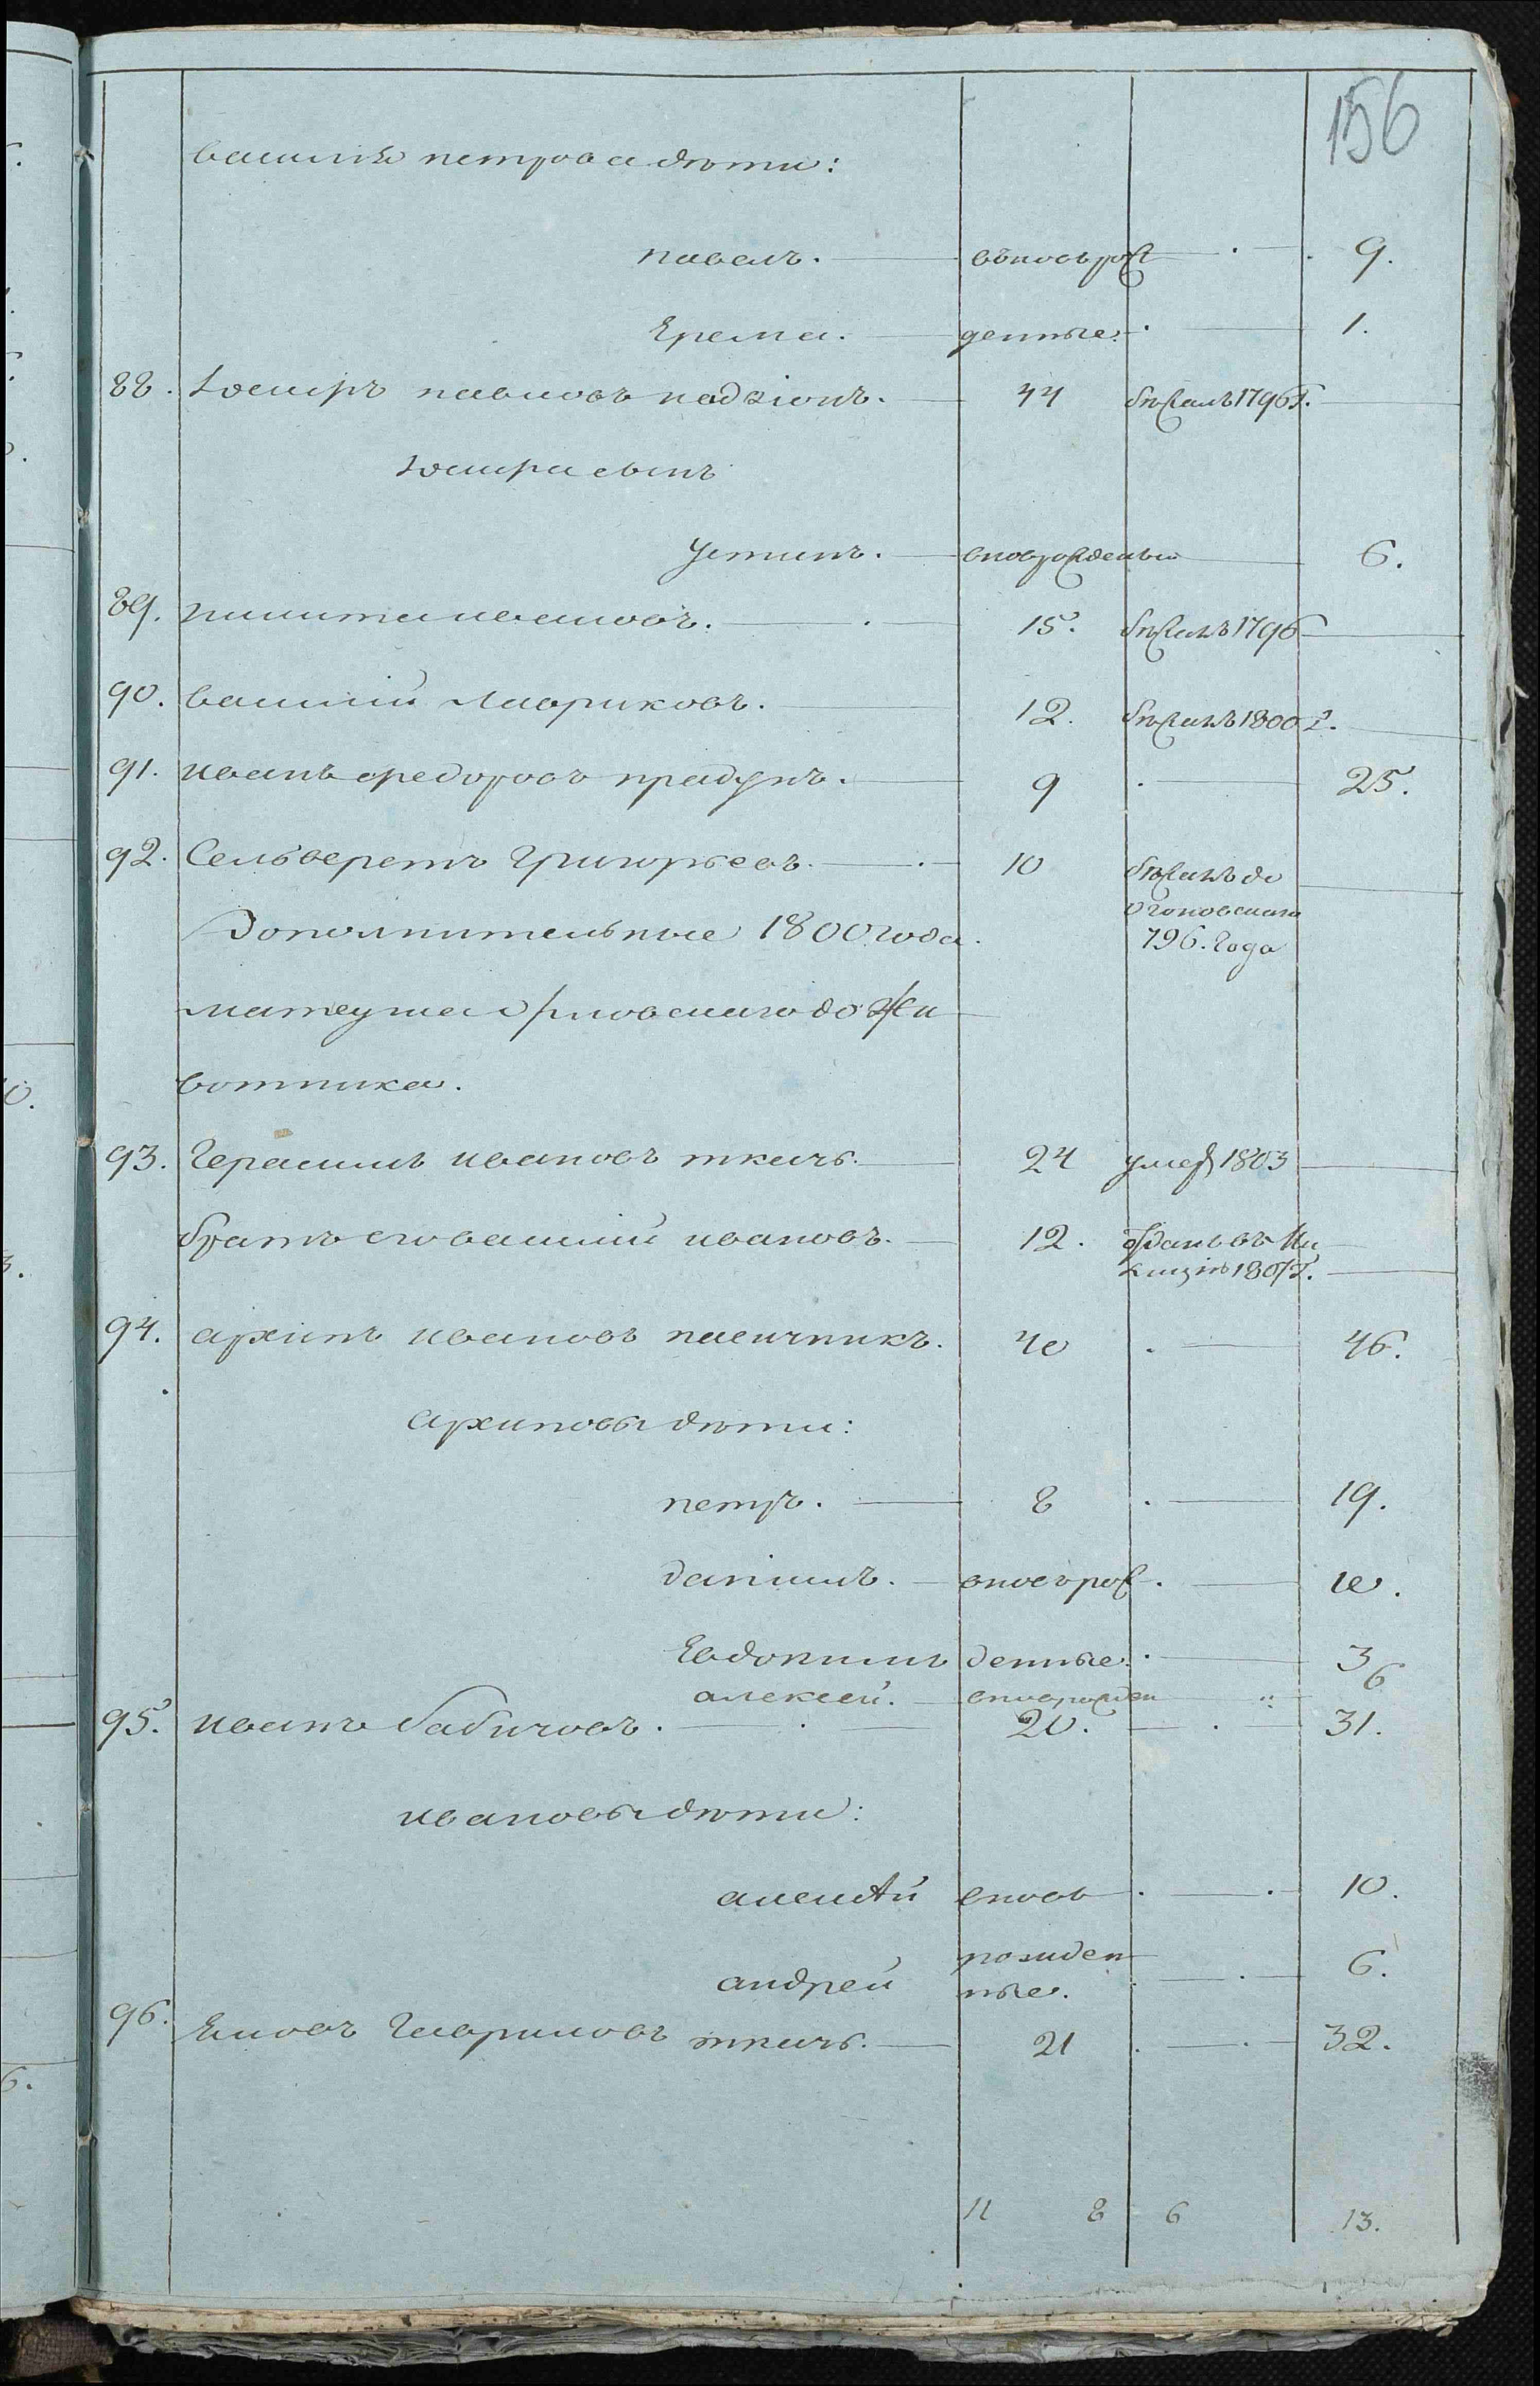 156
василия петрова дѣти:
павелъ. вновь рож 9.
Ерема. денные. 1.
88. павловъ 44 бѣжалъ 1796 г.
сынъ
устинъ. вноворожденый 6.
89. никита ивановъ. 15. бѣжалъ 1796
90. василий лавриковъ. 12. бѣжалъ 1800 г.
91. иванъ федоровъ прадунъ. 9 25.
92. Селвверстъ Григорьевъ. 10 бѣжалъ до
796. года
Дополнительные 1800 года.
матеуша орловскаго дожи
вотника.
93. Герасимъ ивановъ ткачъ. 24 умер 1803
братъ его василий ивановъ. 12. отданъ въ ми
лицію 1807 г.
94. архипъ ивановъ пасичникъ. 40 46.
архиповы дѣти:
петръ. 8 19.
данилъ. вновърож 10.
Евдокимъ денные. 3
алексей. вноворожден 6
95. иванъ бабичовъ. 20. 31.
ивановы дѣти:
алексѣй вновь 10.
андрей рожден
ные. 6.
96. Гавриловъ ткачъ. 21 32.
11 8 6 13.